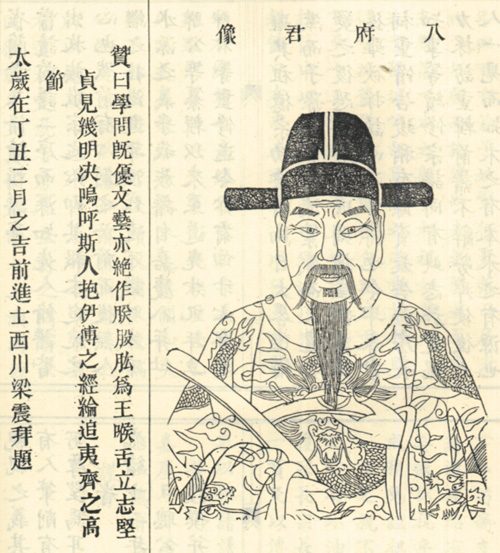 八府君像
贊曰學問旣優文藝亦絶作朕股肱爲王喉舌立志堅
貞見幾明決嗚呼斯人抱伊傅之經綸迫夷齊之高
節
太歲在丁丑二月之吉前進士西川梁震拜題